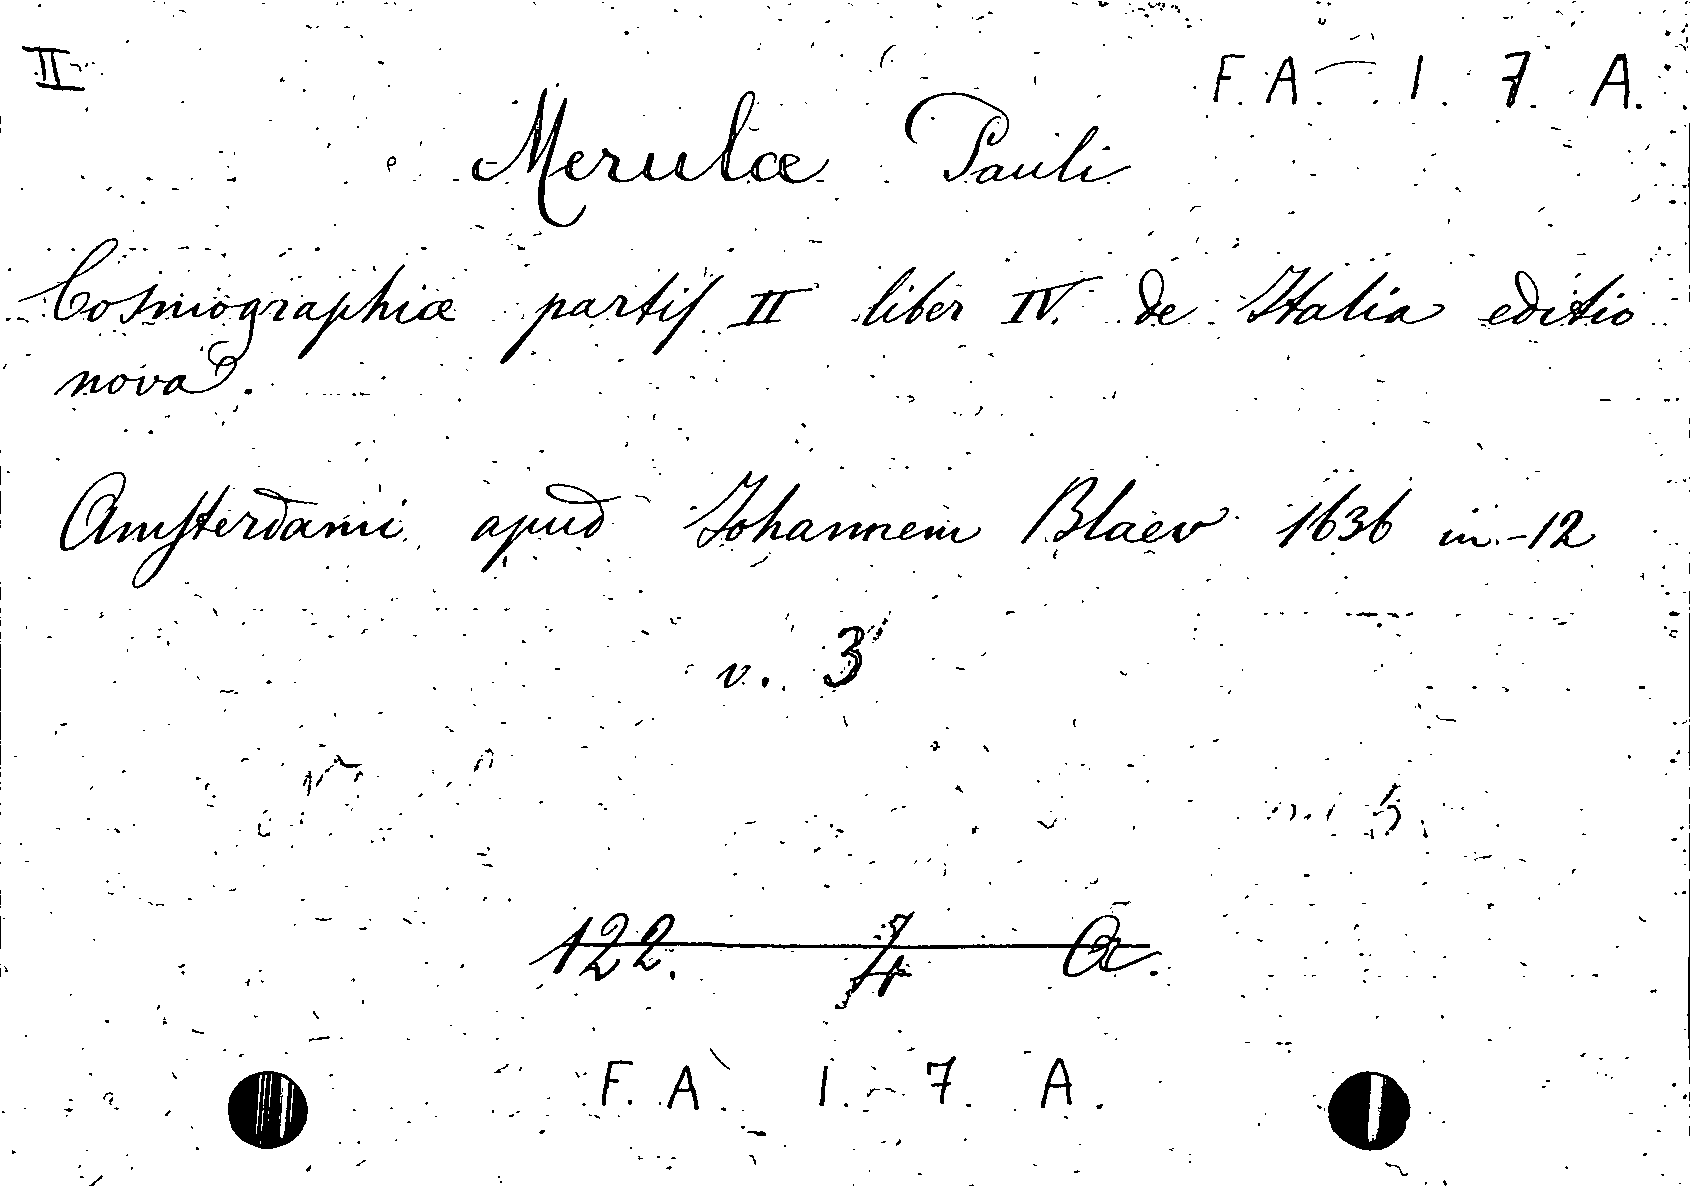 II
F. A. I. 7. A.
Merulæ Pauli
Cosmographiæ partis II liber IV. de Italia editio
nova.
Amsterdami apud Johannem Blaev 1636 in-12
v. 3
122. 4 A.
F. A. I. 7. A.